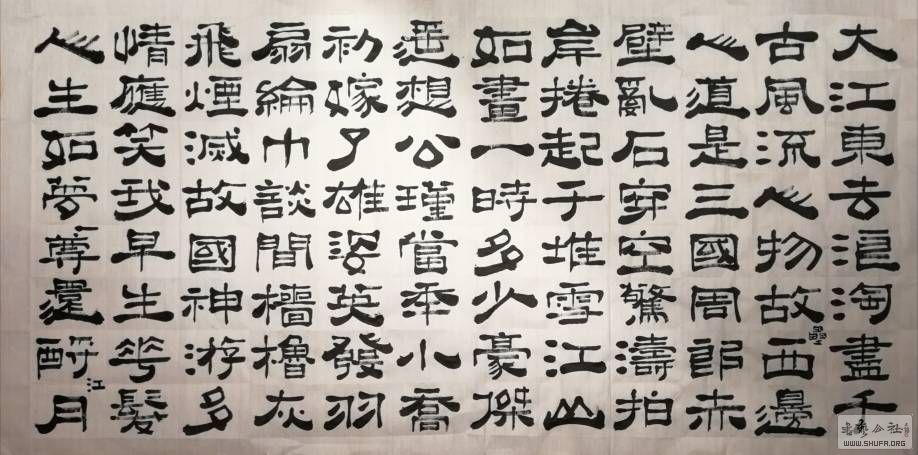 大江東去浪淘盡千
古風流人物故壘西邊
人道是三國周郎赤
壁亂石穿空驚濤拍
岸捲起千堆雪江山
如畫一時多少豪傑
遥想公瑾當年小喬
初嫁了雄姿英發羽
扇綸巾談間檣櫓灰
飛煙滅故國神游多
情應笑我早生華髮
人生如夢尊還酹江月
书法公社
WWW.SHUFA.ORG